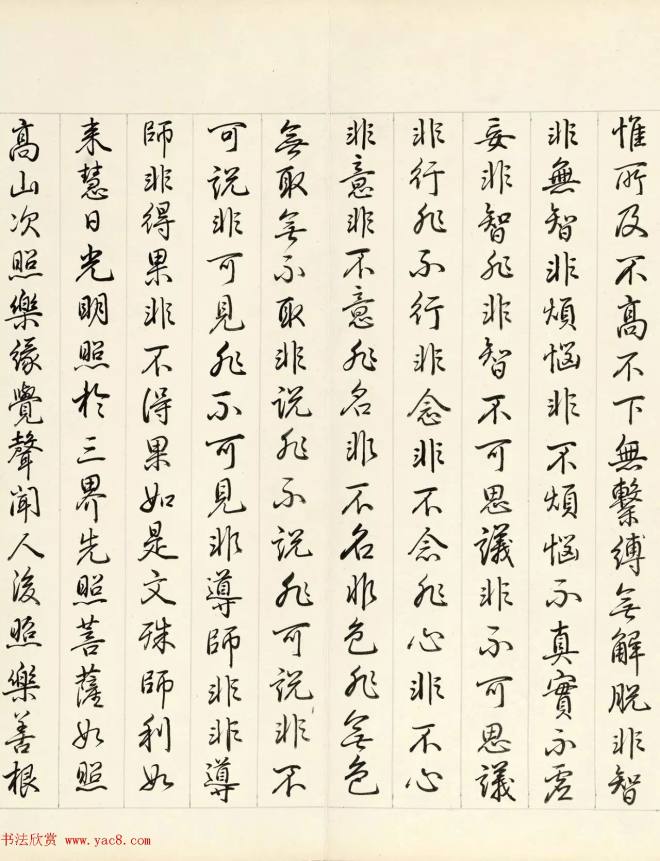 惟所及不高不下無繫縛無解脫非智
非無智非煩惱非不煩惱不真實不虛
妄非智非非智不可思議非不可思議
非行非不行非念非不念非心非不心
非意非不意非名非不名非色非無色
無取無不取非說非不說非可說非不
可說非可見非不可見非導師非非導
師非得果非不得果如是文殊師利如
来慧日光明照於三界先照菩薩如照
高山次照樂緣覺聲聞人後照樂善根
书法欣赏 www.yac8.com